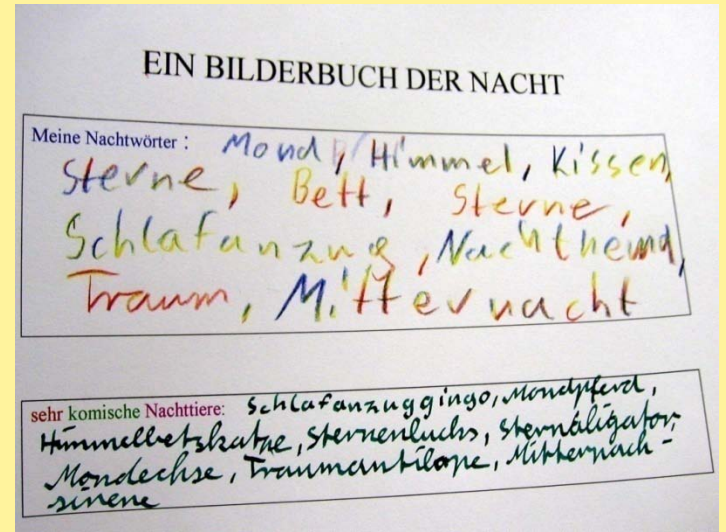 EIN BILDERBUCH DER NACHT
Meine Nachtwörter : Mond, Himmel, Kissen,
Sterne, Bett, Sterne,
Schlafanzug, Nachthemd,
Traum, Mitternacht
sehr komische Nachttiere: Schlafanzuggingo, Mondpferd,
Himmelbetskatze, Sternenluchs, Sternäligator,
Mondechse, Traumantilope, Mitternach-
sirene